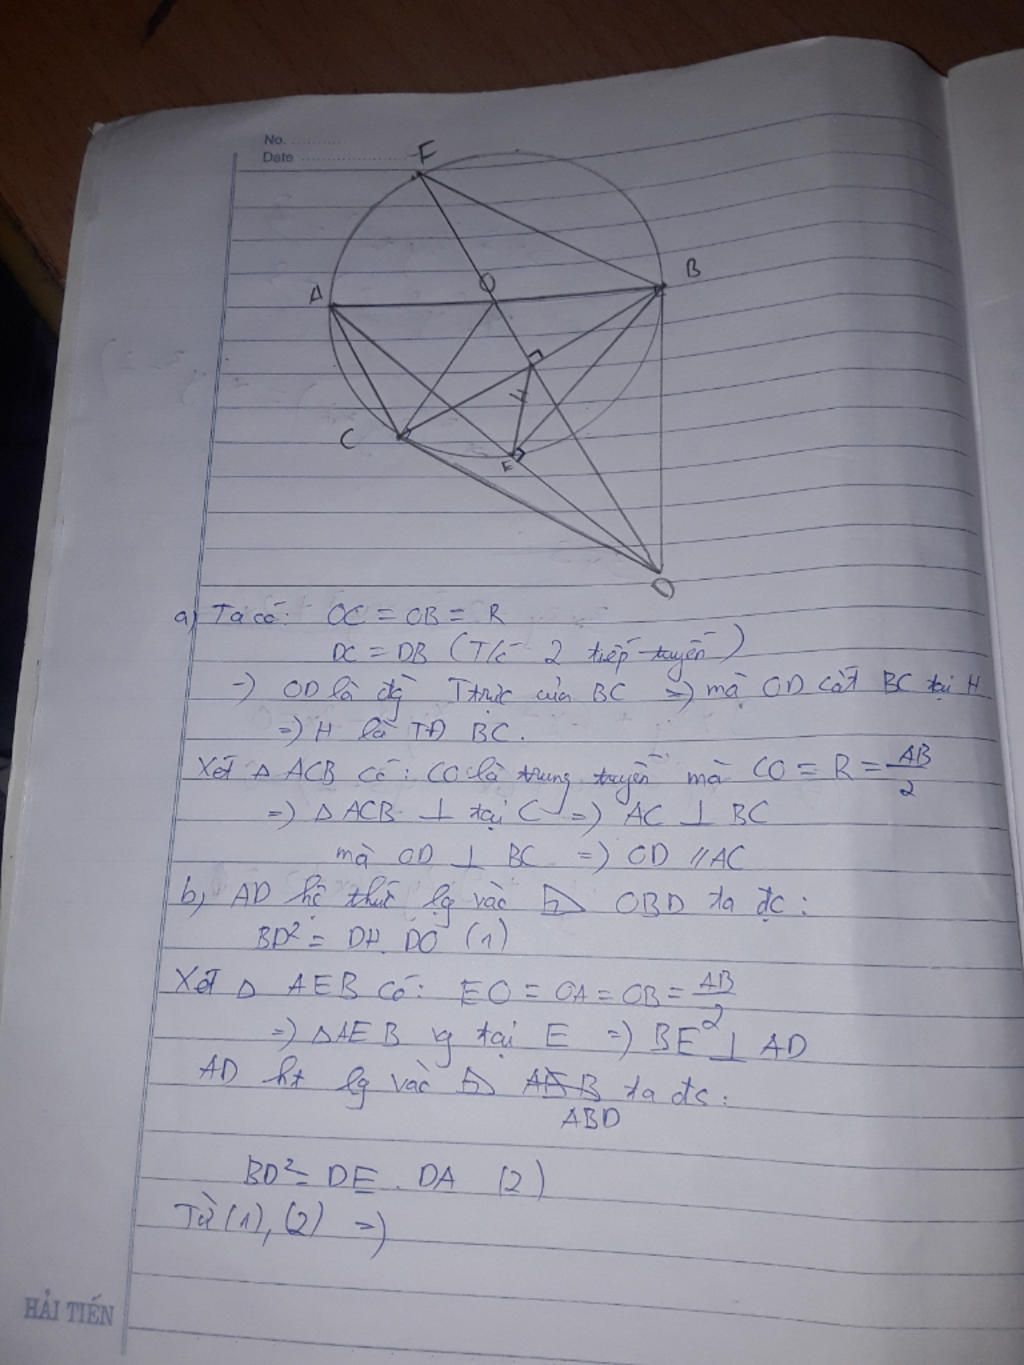 No. ............
Date .....................
F
O
A
B
H
C
E
D
a) Ta có: OC = OB = R
DC = DB (T/c 2 tiếp tuyến)
=) OD là đg Ttrực của BC =) mà OD cắt BC tại H
=) H là TĐ BC.
Xét △ ACB có: CO là trung tuyến mà CO = R = AB/2
=) △ ACB ⊥ tại C =) AC ⊥ BC
mà OD ⊥ BC =) OD // AC
b, AD hệ thức lg vào △ OBD ta đc:
BD² = DH. DO (1)
Xét △ AEB có: EO = OA = OB = AB/2
=) △AEB vg tại E =) BE ⊥ AD
AD ht lg vào △ AEB ta đc:
ABD
BD² = DE . DA (2)
Từ (1), (2) =)
HẢI TIẾN